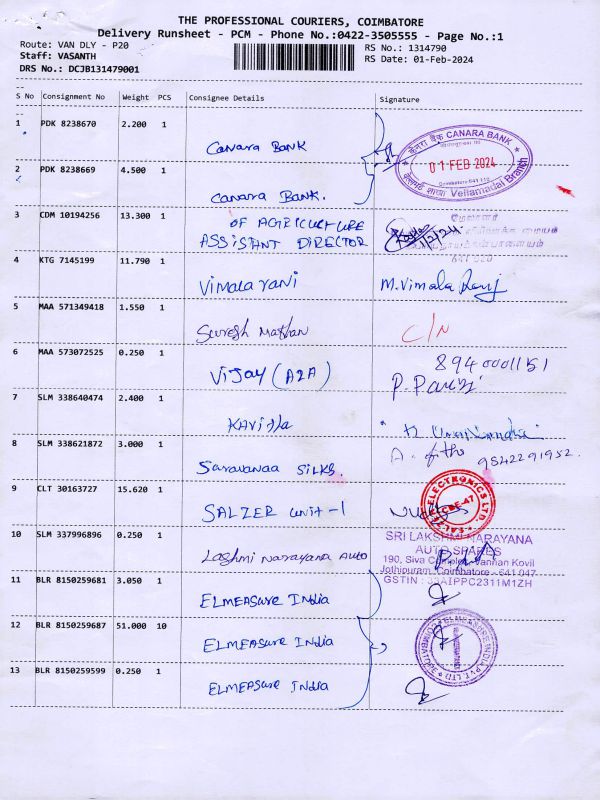 THE PROFESSIONAL COURIERS, COIMBATORE
Delivery Runsheet - PCM - Phone No.:0422-3505555 - Page No.:1
Route: VAN DLY - P20
RS No.: 1314790
Staff: VASANTH
RS Date: 01-Feb-2024
DRS No.: DCJB131479001
S No Consignment No Weight PCS Consignee Details Signature
1 PDK 8238670 2.200 1
Canara Bank
केनरा बैंक CANARA BANK
01 FEB 2024
Vellamadai Branch
2 PDK 8238669 4.500 1
Canara Bank.
3 CDM 10194256 13.300 1
OF AGRICULTURE
ASSISTANT DIRECTOR
4 KTG 7145199 11.790 1
Vimala rani M. Vimala Rani
5 MAA 571349418 1.550 1
Suresh C/N
6 MAA 573072525 0.250 1
Vijay (A2A)
8940001151
7 SLM 338640474 2.400 1
Kavitha
8 SLM 338621872 3.000 1
Saravanaa SILKS
9842291952
9 CLT 30163727 15.620 1
SALZER unit-1
SALZER ELECTRONICS LTD.
CBE-47
10 SLM 337996896 0.250 1
Laghmi Narayana Auto
SRI LAKSHMI NARAYANA
AUTO SPARES
190, Siva Complex, Vannan Kovil
Jothipuram, Coimbatore - 641 047
GSTIN : 33AIPPC2311M1ZH
11 BLR 8150259681 3.050 1
ELMEASURE India
12 BLR 8150259687 51.000 10
ELMEASURE India
ELMEASURE INDIA PVT. LTD
COIMBATORE
13 BLR 8150259599 0.250 1
ELMEASURE India